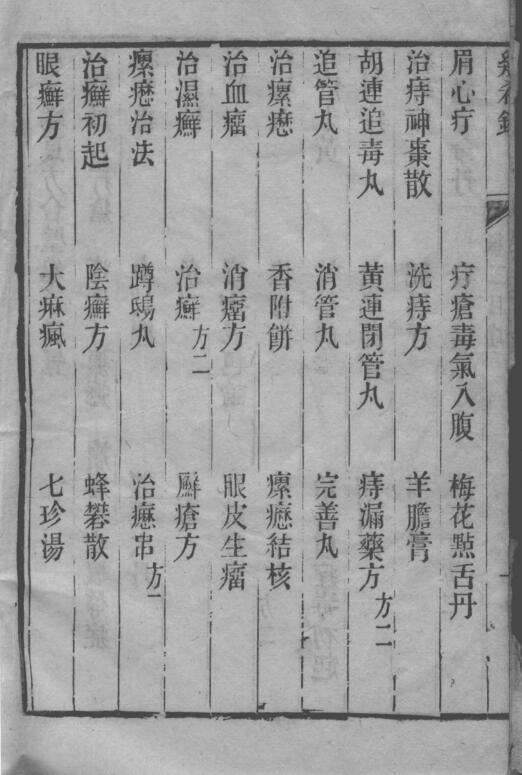 眉心疔 疔瘡毒氣入腹 梅花點舌丹
治痔神棗散 洗痔方 羊膽膏
胡連追毒丸 黃連閉管丸 痔漏藥方 方二
追管丸 消管丸 完善丸
治瘰癧 香附餅 瘰癧結核
治血瘤 消瘤方 眼皮生瘤
治濕癬 治癬 方二 癬瘡方
瘰癧治法 蹲鴟丸 治癧串 方二
治癬初起 陰癬方 蜂礬散
眼癬方 大麻瘋 七珍湯